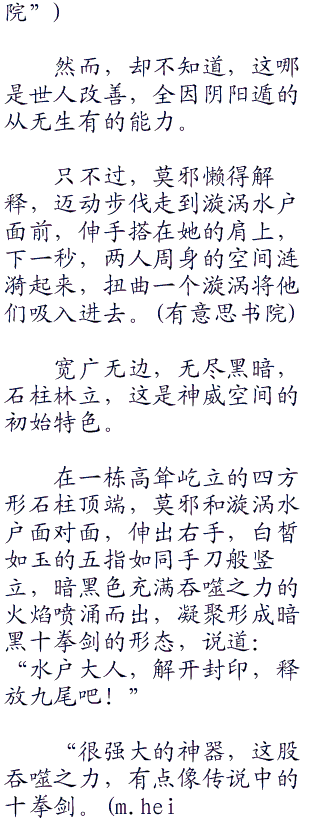 院”)
然而，却不知道，这哪
是世人改善，全因阴阳遁的
从无生有的能力。
只不过，莫邪懒得解
释，迈动步伐走到漩涡水户
面前，伸手搭在她的肩上，
下一秒，两人周身的空间涟
漪起来，扭曲一个漩涡将他
们吸入进去。(有意思书院)
宽广无边，无尽黑暗，
石柱林立，这是神威空间的
初始特色。
在一栋高耸屹立的四方
形石柱顶端，莫邪和漩涡水
户面对面，伸出右手，白皙
如玉的五指如同手刀般竖
立，暗黑色充满吞噬之力的
火焰喷涌而出，凝聚形成暗
黑十拳剑的形态，说道：
“水户大人，解开封印，释
放九尾吧！”
“很强大的神器，这股
吞噬之力，有点像传说中的
十拳剑。(m.hei